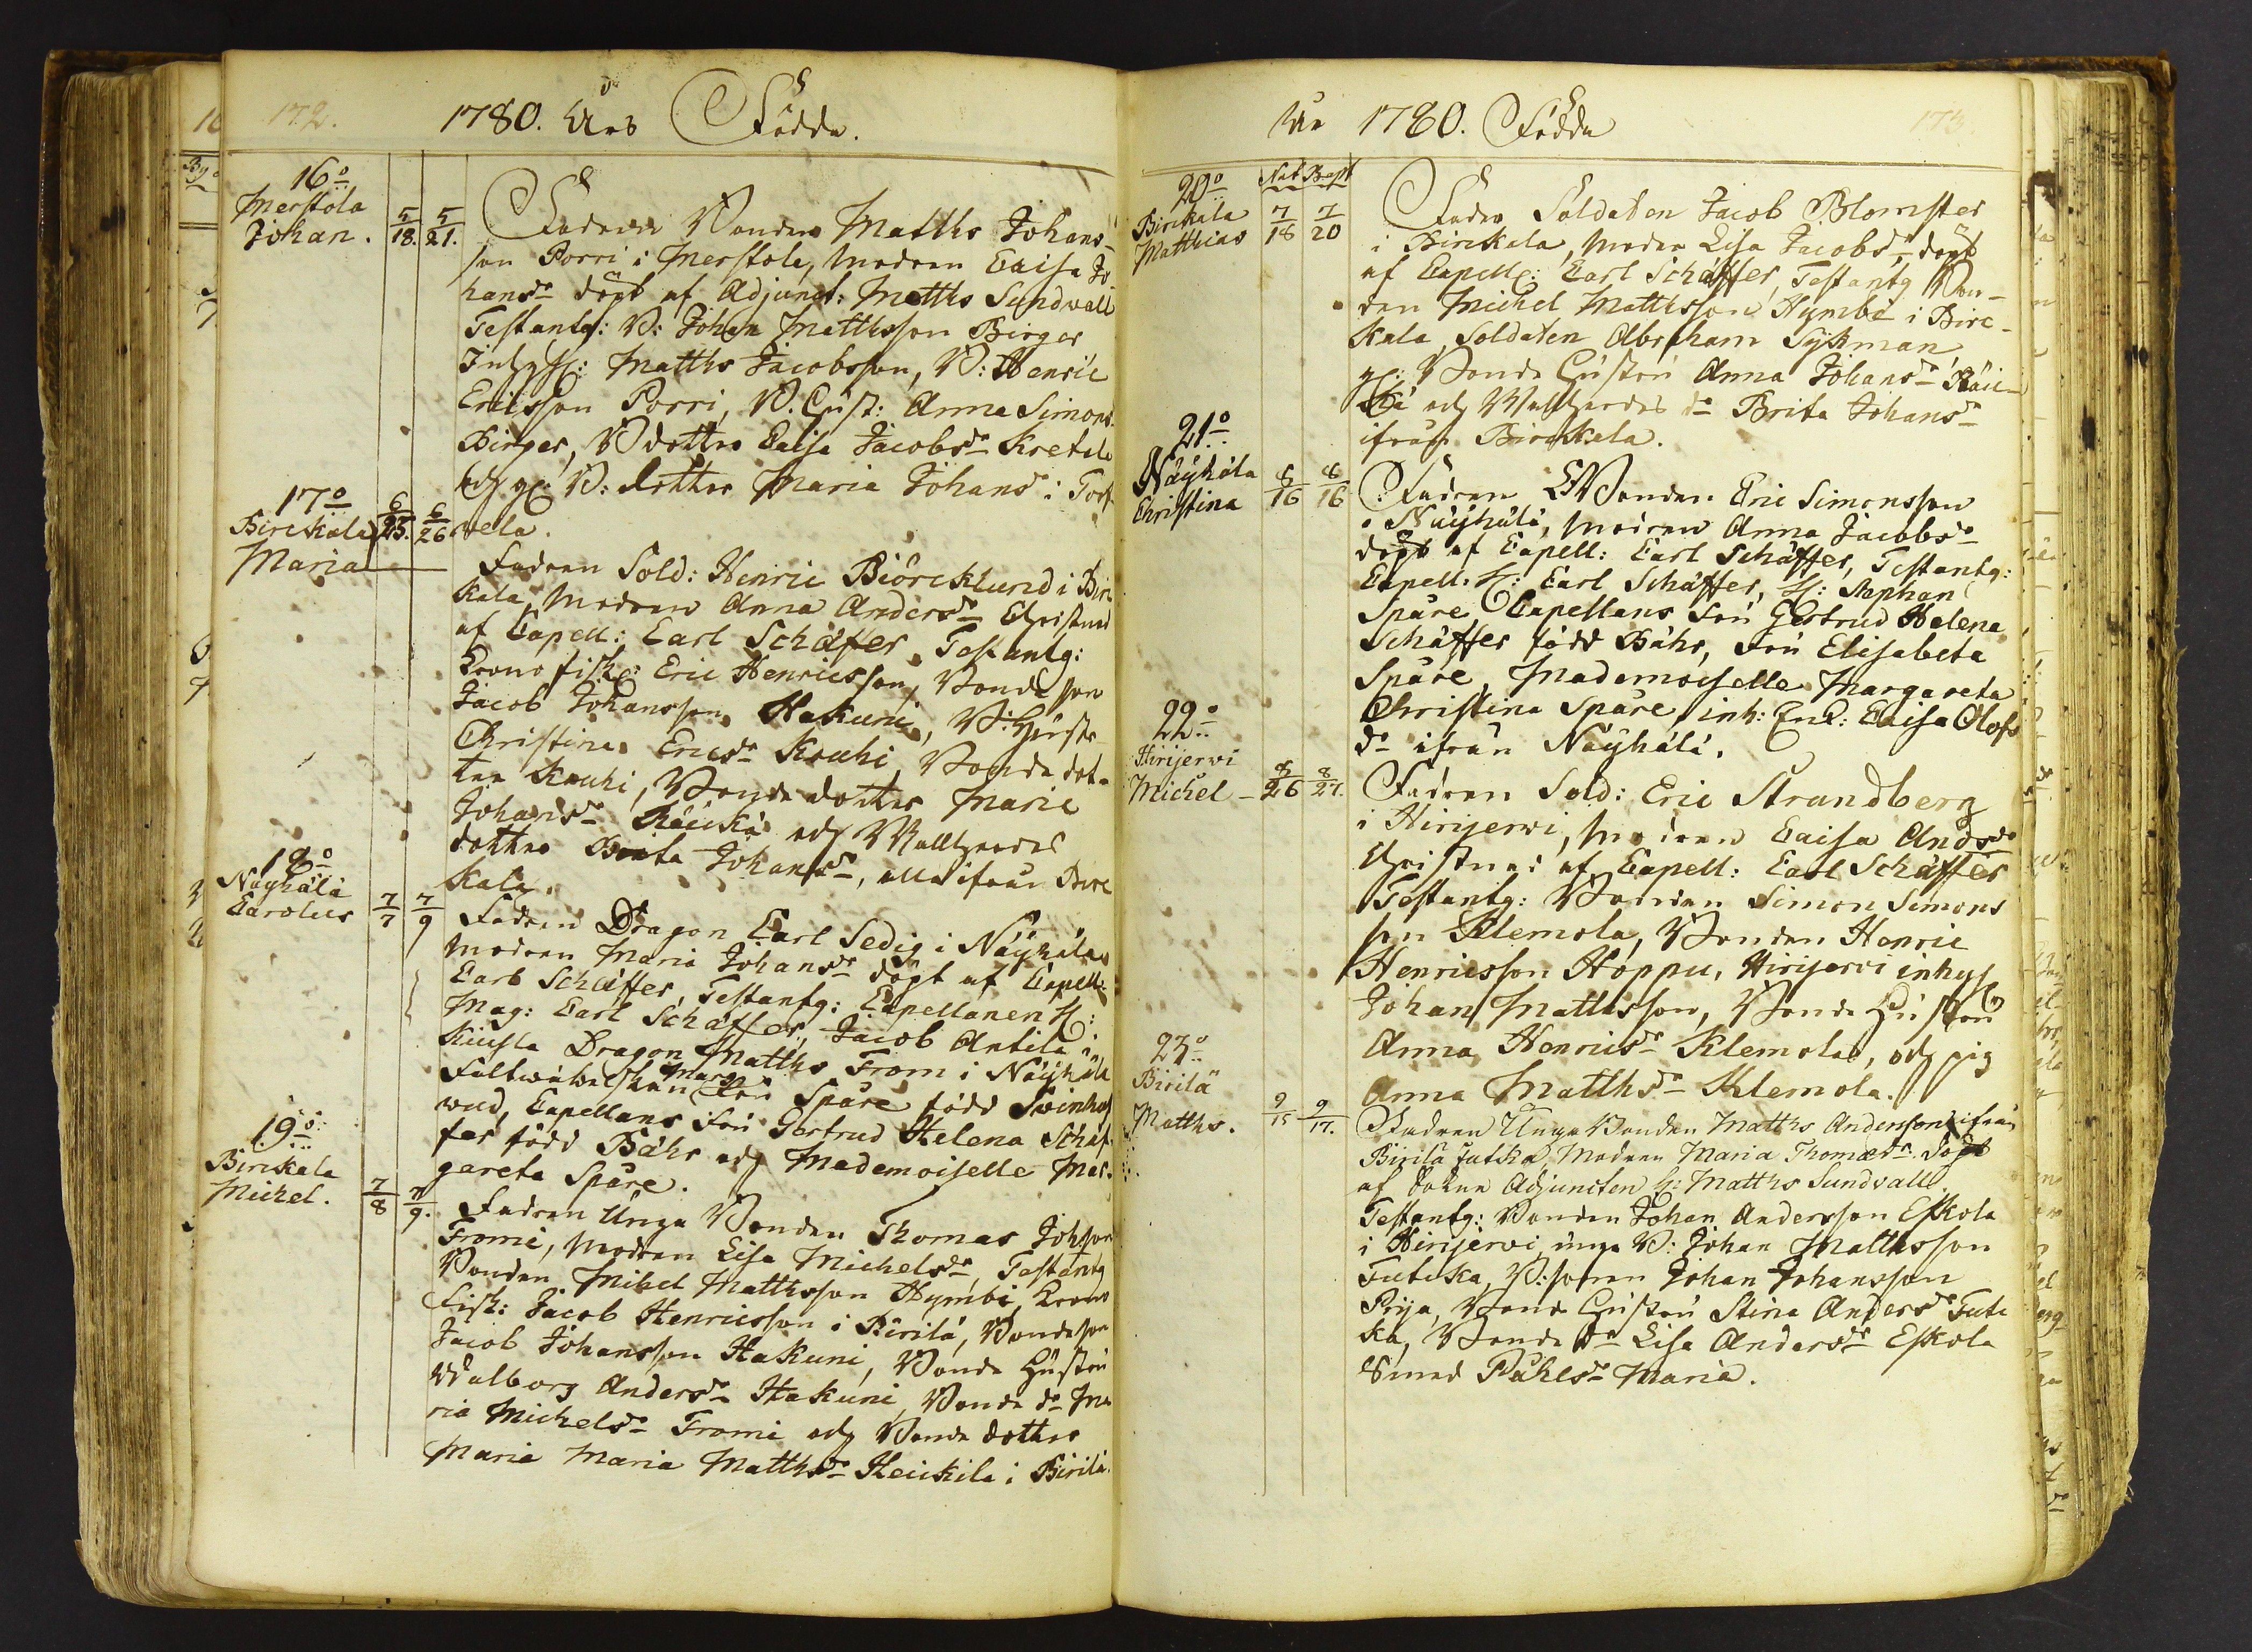 172.
1780. Års Födde.
16o
Merstola
Johan.
5/18. 5/21.
Fadren Bonden Matths Johans-
son Porri i Merstola, Modren Caisa Jo-
hansdr döpt af Adjunct: Matths Sundwall
Testantg: B: Johan Matthsson Birger
Matths Jacobsson, B: Henric
Ericsson Porri, B. Hust: Anna Simons
Birger, B dotter Caisa Jacobsdr Kretela
och B: dotter Maria Johansd i Torp
wela.
17o
Birckala
Maria
6/25. 6/26
Fadren Sold: Henric Biörcklund i Birc
kala, Modren Anna Andersdr Christnad
af Capell: Carl Schäffer, Testantg:
Krono fisk: Eric Henricsson, Bonde son
Jacob Johansson Hakuni, B: Hustr
Christina Ericsdr Kauhi, Bonde dot-
ter Kauhi, Bonde dotter Maria
Johansdr Räickä och Wallgardes
dotter Brita Johansdr, alla ifrån Birc
kala.
18o
Näyhälä
Carolus
7/7 7/9
Fadren Dragon Carl Sedig i Näyhälä
Modren Maria Johansdr döpt af Capell:
Carl Schäffer, Testantg: Capellanen H:
Mag: Carl Schäffer, Jacob Antila i
Kiusla Dragon Matths From i Näyhälä
Fältwäbelskan Marg Spåre född Swinhuf
wud, Capellans Fru Gertrud Helena Schäf-
fer född Bähr och Mademoiselle Mar-
gareta Spåre.
19o
Birckala
Michel.
7/8 7/9.
Fadren Unga Bonden Thomas Johsson
Fromi, Modren Lisa Michelsdr, Testantg
Bonden Mikel Matthsson Hymbi, Krono
Fisk: Jacob Henricsson i Birilä, Bondeson
Jacob Johansson Hakuni, Bonde Hustru
Walborg Andersdr Hakuni, Bonde do Ma
ria Michelsdr Fromi och Bonde dotter
Maria Maria Matthsdr Heickila i Birilä.
År 1780. Födde
173.
Nat Bapt
20o
Birckala
Matthias
7/18 7/20
Fadren Soldaten Jacob Blomster
i Birckala, Modren Lisa Jacobsdr, döpt
af Capell: Carl Schäffer, Testantg Bon-
den Michel Matthsson Hymbi i Birc-
kala, Soldaten Abraham Sykman
Bonde Hustru Anna Johansdr Räic-
kä och Wallgardes do Brita Johansdr
ifrån Birckala.
21o
Näyhälä
Christina
8/16 8/16
Fadren Bonden Eric Simonsson
i Näyhälä, Modren Anna Jacobsdr
döpt af Capell: Carl Schäffer, Testantg:
Capell. H: Carl Schäffer, H: Stephan
Spåre Capellans Fru Gertrud Helena
Schäffer född Bähr, Fru Elisabeta
Spåre, Mademoiselle Margareta
Christina Spåre, inh: Enk: Caisa Olofs
dr ifrån Näyhälä.
22o
Hirijerwi
Michel
8/26 8/27.
Fadren Sold: Eric Strandberg
i Hirijerwi, Modren Caisa Andsdr
Christnad af Capell: Carl Schäffer
Testantg: Bonden Simon Simons
son Klemola, Bonden Henric
Henricsson Hoppu, Hirijerwi inhys
Johan Matthsson, Bonde Hustru
Anna Henricsdr Klemola, och pig
Anna Matthsdr Klemola.
23o
Birilä
Matths.
9/15 9/17.
Fadren Unga Bonden Matths Andersson ifrån
Birilä Juticka, Modren Maria Thomasdr Döpt
af Adjuncten H: Matths Sundvall.
Testantg: Bonden Johan Andersson Eskola
i Hirijerwi, unga B: Johan Matthsson
Juticka, B: sonen Johan Johansson
Prija, Bonde Hustru Stina Andersdr Juti
ka, Bonde do Lisa Andersdr Eskola
Smed Påhlsdr Maria.